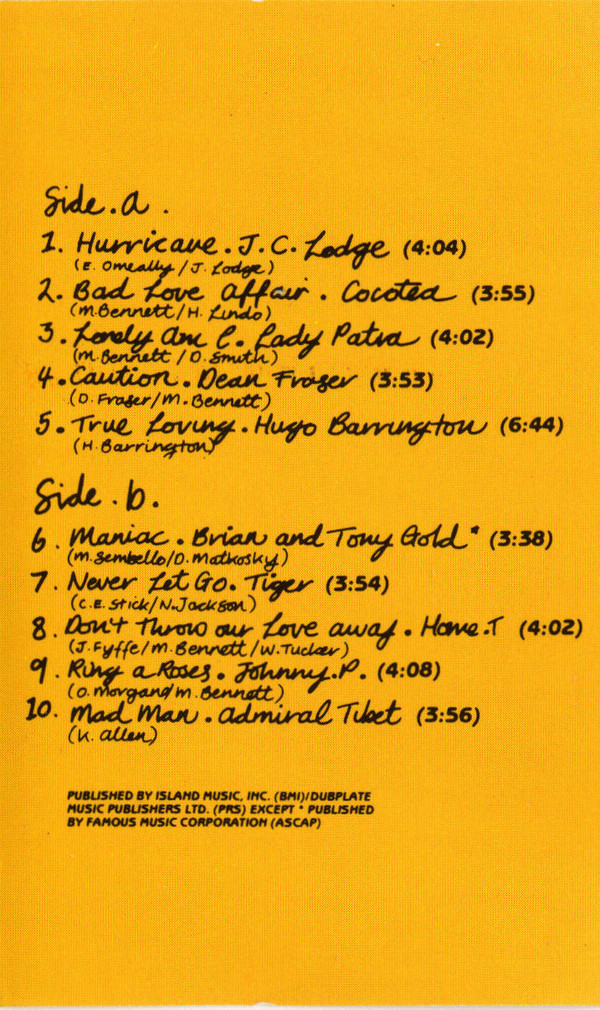 Side.a.
1. Hurricane. J. C. Lodge (4:04)
(E. Omeally/J. Lodge)
2. Bad Love Affair. Cocotea (3:55)
(M.Bennett/H. Lindo)
3. Lonely Am I. Lady Patra (4:02)
(M. Bennett/D. Smith)
4. Caution. Dean Fraser (3:53)
(D. Fraser/M. Bennett)
5. True Loving. Hugo Barrington (6:44)
(H. Barrington)
Side.b.
6. Maniac. Brian and Tony Gold* (3:38)
(M. Sembello/D. Matkosky)
7. Never Let Go. Tiger (3:54)
(C.E. Stick/N. Jackson)
8. Don't throw our Love away. Home.T (4:02)
(J. Fyffe/M. Bennett/W. Tucker)
9. Ring a Roses. Johnny.P. (4:08)
(O. Morgan/M. Bennett)
10. Mad Man. Admiral Tibet (3:56)
(K. Allen)
PUBLISHED BY ISLAND MUSIC, INC. (BMI)/DUBPLATE
MUSIC PUBLISHERS LTD. (PRS) EXCEPT * PUBLISHED
BY FAMOUS MUSIC CORPORATION (ASCAP)